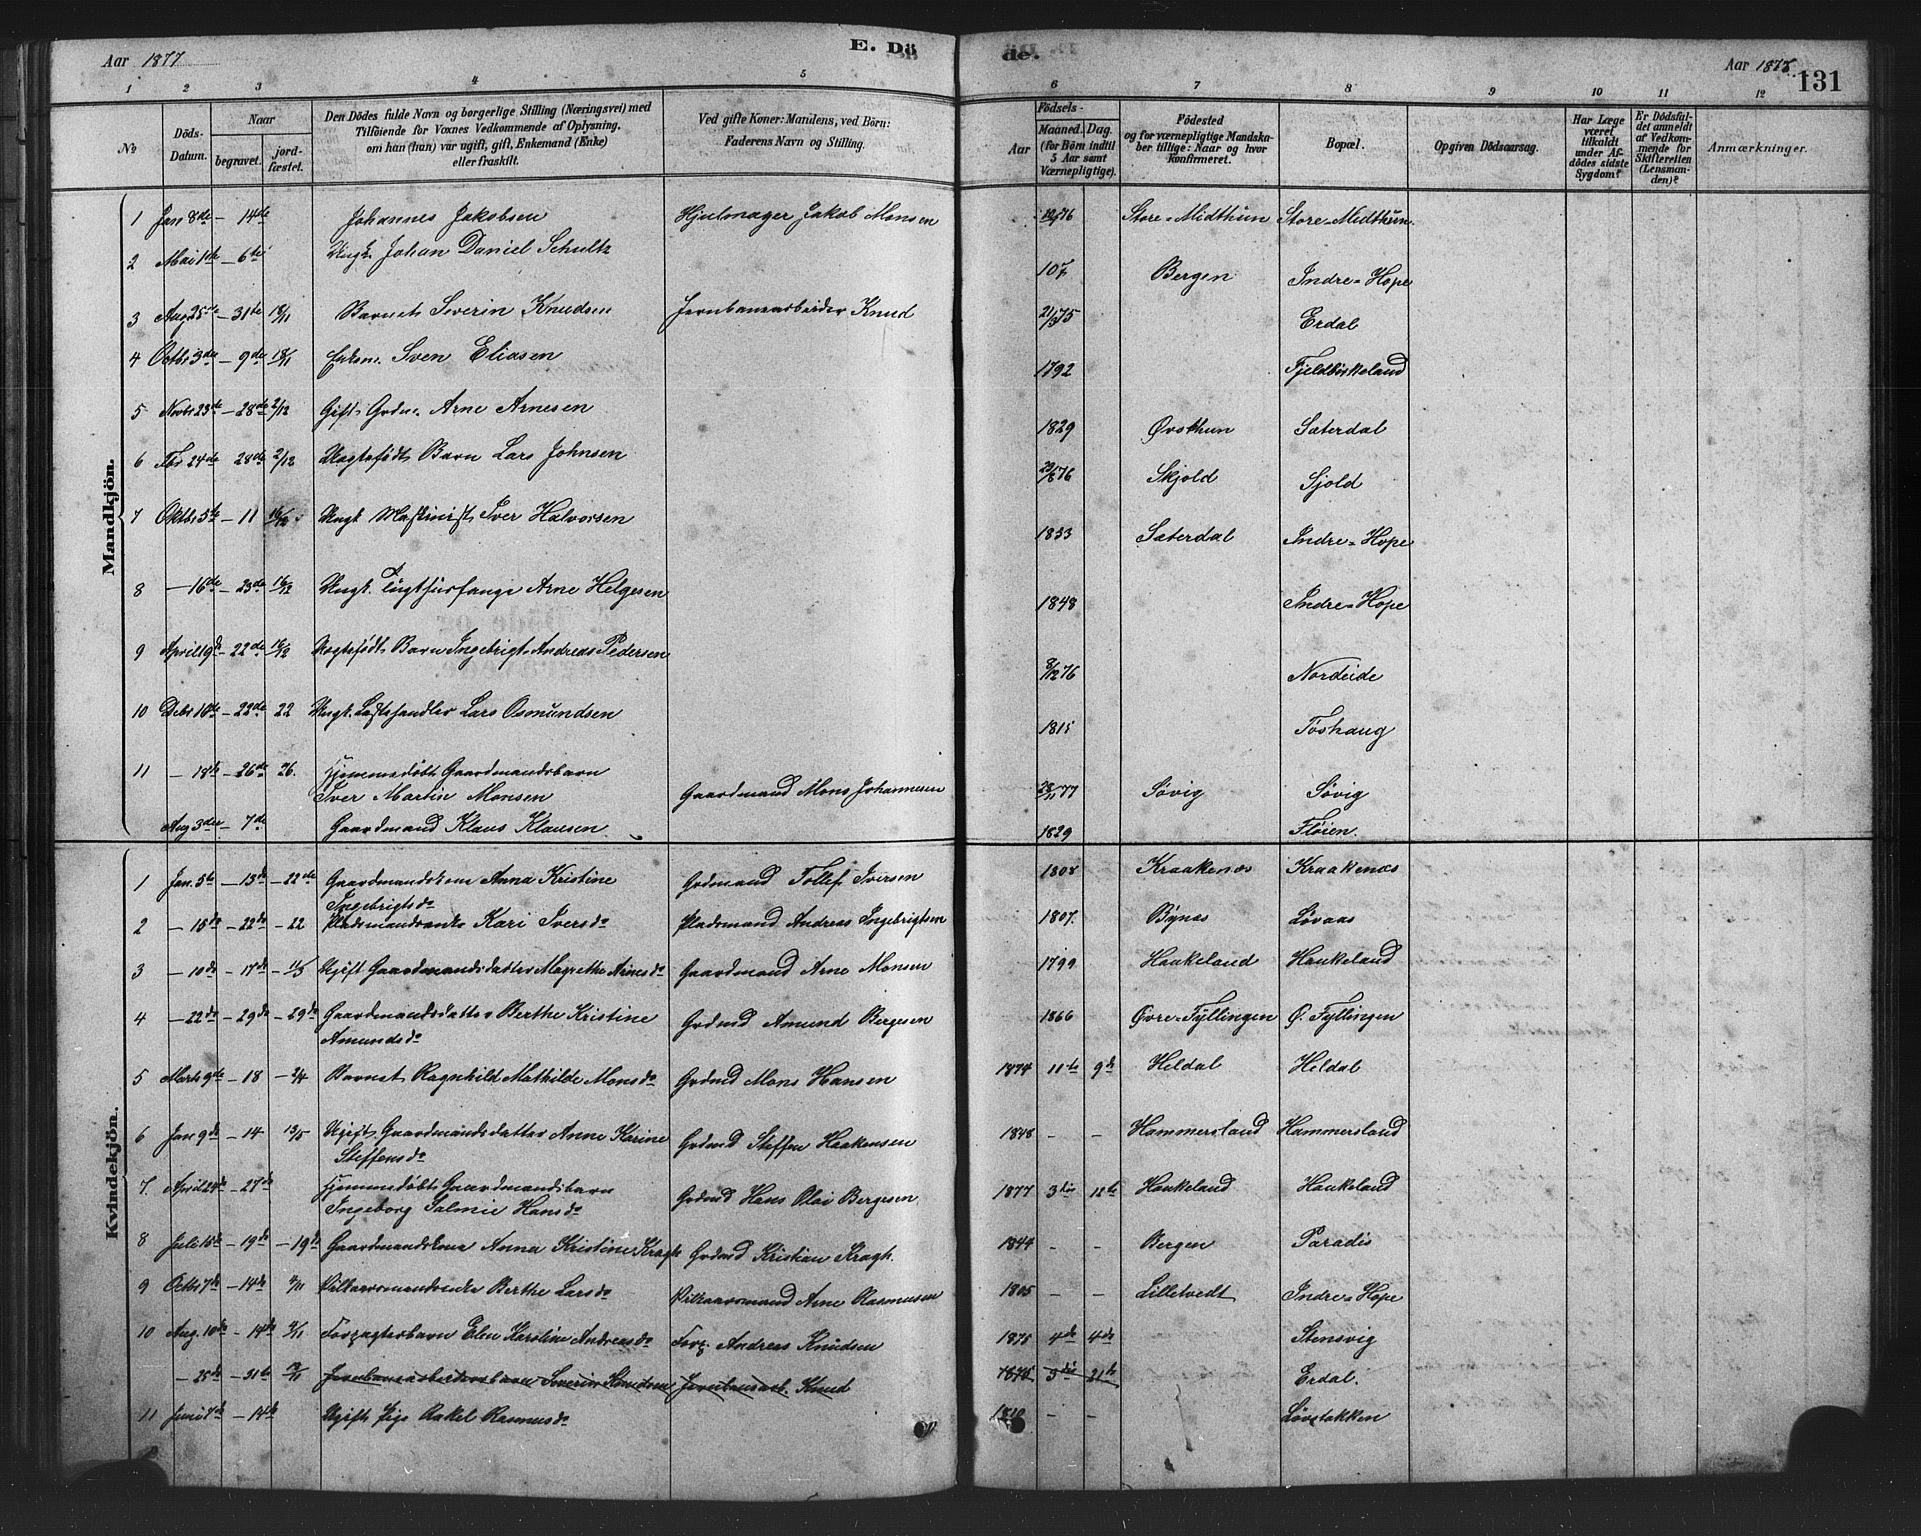 Aar 1877
E. Dö
de.
Aar 1877.
131
1 2 3 4 5
6 7 8 9 10 11 12
No
Döds-Datum.
Naar
begravet.
jord-fæstet.
Den Dödes fulde Navn og borgerlige Stilling (Næringsvei) med
Tilföiende for Voxnes Vedkommende af Oplysning,
om han (hun) var ugift, gift, Enkemand (Enke)
eller fraskilt.
Ved gifte Koner: Mandens, ved Börn:
Faderens Navn og Stilling.
Födsels-
Aar
Maaned. Dag.
(for Börn indtil
5 Aar samt
Værnepligtige).
Födested
og for værnepligtige Mandska-
ber tillige: Naar og hvor
konfirmeret.
Bopæl.
Opgiven Dödsaarsag.
Har Læge
været
tilkaldt
under Af-
dödes sidste
Sygdom?
Er Dödsfal-
det anmeldt
af Vedkom-
mende for
Skifteretten
(Lensman-
den)?
Anmærkninger.
Mandkjön.
1 Jan 8de – 14de Johannes Jakobsen Hjulmager Jakob Monsen 76 Store-Midthun Store-Midthun.
2 Mai 1ste – 6te Ungk. Johan Daniel Schultz Bergen Indre-Hope
3 Aug 25de – 31te 18/11 Barnet Severin Knudsen Jernbanearbeider Knud 75 Erdal
4 Octbr 3die – 9de 18/11 Enkem. Sven Eliasen 1792 Fjeldbirkeland
5 Novbr 23de – 28de 2/12 Gift Grdm. Arne Arnesen 1829 Øvsthun Sæterdal
6 24de 28de 2/12 Uægtefødt Barn Lars Johnsen 76 Skjold Sjold
7 Oktbr 5te – 11 16/12 Ungk Maskinist Iver Halvorsen 1833 Sæterdal Indre-Hope
8 – 16de – 23de 16/12 Ungk. Tugthusfange Arne Helgesen 1848 Indre-Hope
9 April 19de – 22de 16/12 Uægtefødt Barn Ingebrigt Andreas Pedersen 8/12 76 Nordeide
10 Debr 16de – 22de 22 Ungk. Lars Osmundsen 1815 Tøshaug
11 – 18de – 26de 26. Hjemmedøbt Gaardmandsbarn
Iver Martin Monsen Gaardmand Mons Johannesen 28/11 77 Søvig Søvig
Aug 3die – 7de Gaardmand Klaus Klausen 1829 Fløien.
Kvindekjön.
1 Jan. 5te – 13de – 22de Gaardmandskone Anna Kristine
Ingebrigtsdr Grdmand Tollef Iversen 1808 Kraakenæs Kraakenæs
2 – 15de – 22de – 22 Pladsmandsenke Kari Iversdr Pladsmand Andreas Ingebrigtsen 1807. Bønæs Løvaas
3 – 10de – 17de – 11/3 Ugift Gaardmandsdatter Magrethe Arnesdr Gaardmand Arne Monsen 1799 Haukeland Haukeland
4 – 22de – 29de – 29de Gaardmandsdatter Berthe Kristine
Amundsdr Grdmd Amund Bergesen 1866 Øvre-Fyllingen Ø. Fyllingen
5 Marts 9de – 18 – 2/4 Barnet Ragnhild Mathilde Monsdr Grdmd Mons Hansen 1874 11te 9de Heldal Heldal
6 Jan 9de – 14 13/5 Ugift Gaardmandsdatter Anne Karine
Steffensdr Grdmd Steffen Haakensen 1848 – – Hammersland Hammersland
7. April 24de – 27de Hjemmedøbt Gaardmandsbarn
Ingeborg Salmie Hansdr Grdmd Hans Olai Bergesen 1877 3die 12te Haukeland Haukeland
8 Juli 15de – 19de – 19de Gaardmandskone Anna Kristine Kragh Grdmd Kristian Kragh. 1844 – – Bergen Paradis
9 Octbr 7de – 14de 4/11 Vilkaarsmandsenke Berthe Larsdr Vilkaarsmand Arne Rasmusen 1805 – – Lilletvedt Indre-Hope
10 Aug. 10de – 14de Forpagterbarn Elen Karoline Andreasdr Forp. Andreas Knudsen 1875 4de 4de Stensvig
– 25de – 31te Jernbanearbeidersbarn Severin Knudsen Jernbanearb. Knud 1875 3die 21de Erdal.
11 Juni 7de – 14de Ugift Pige Rakel Rasmusdr 1810 – – Løvstakken